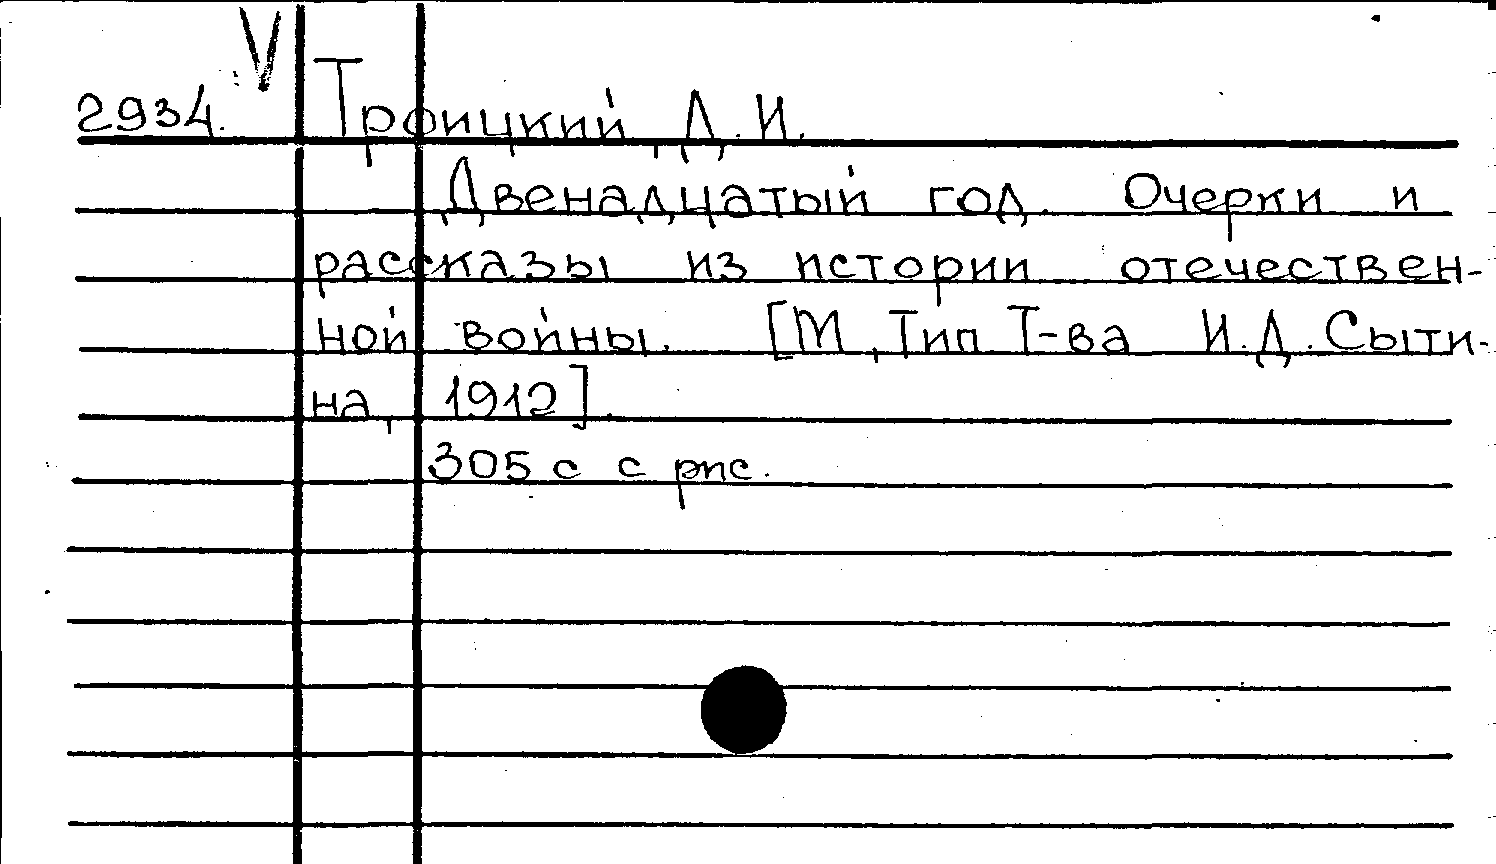 V
2934. Троицкий, Д. И.
Двенадцатый год. Очерки и
рассказы из истории отечествен-
ной войны. [М, Тип Т-ва И.Д.Сыти-
на, 1912].
305 с с рис.